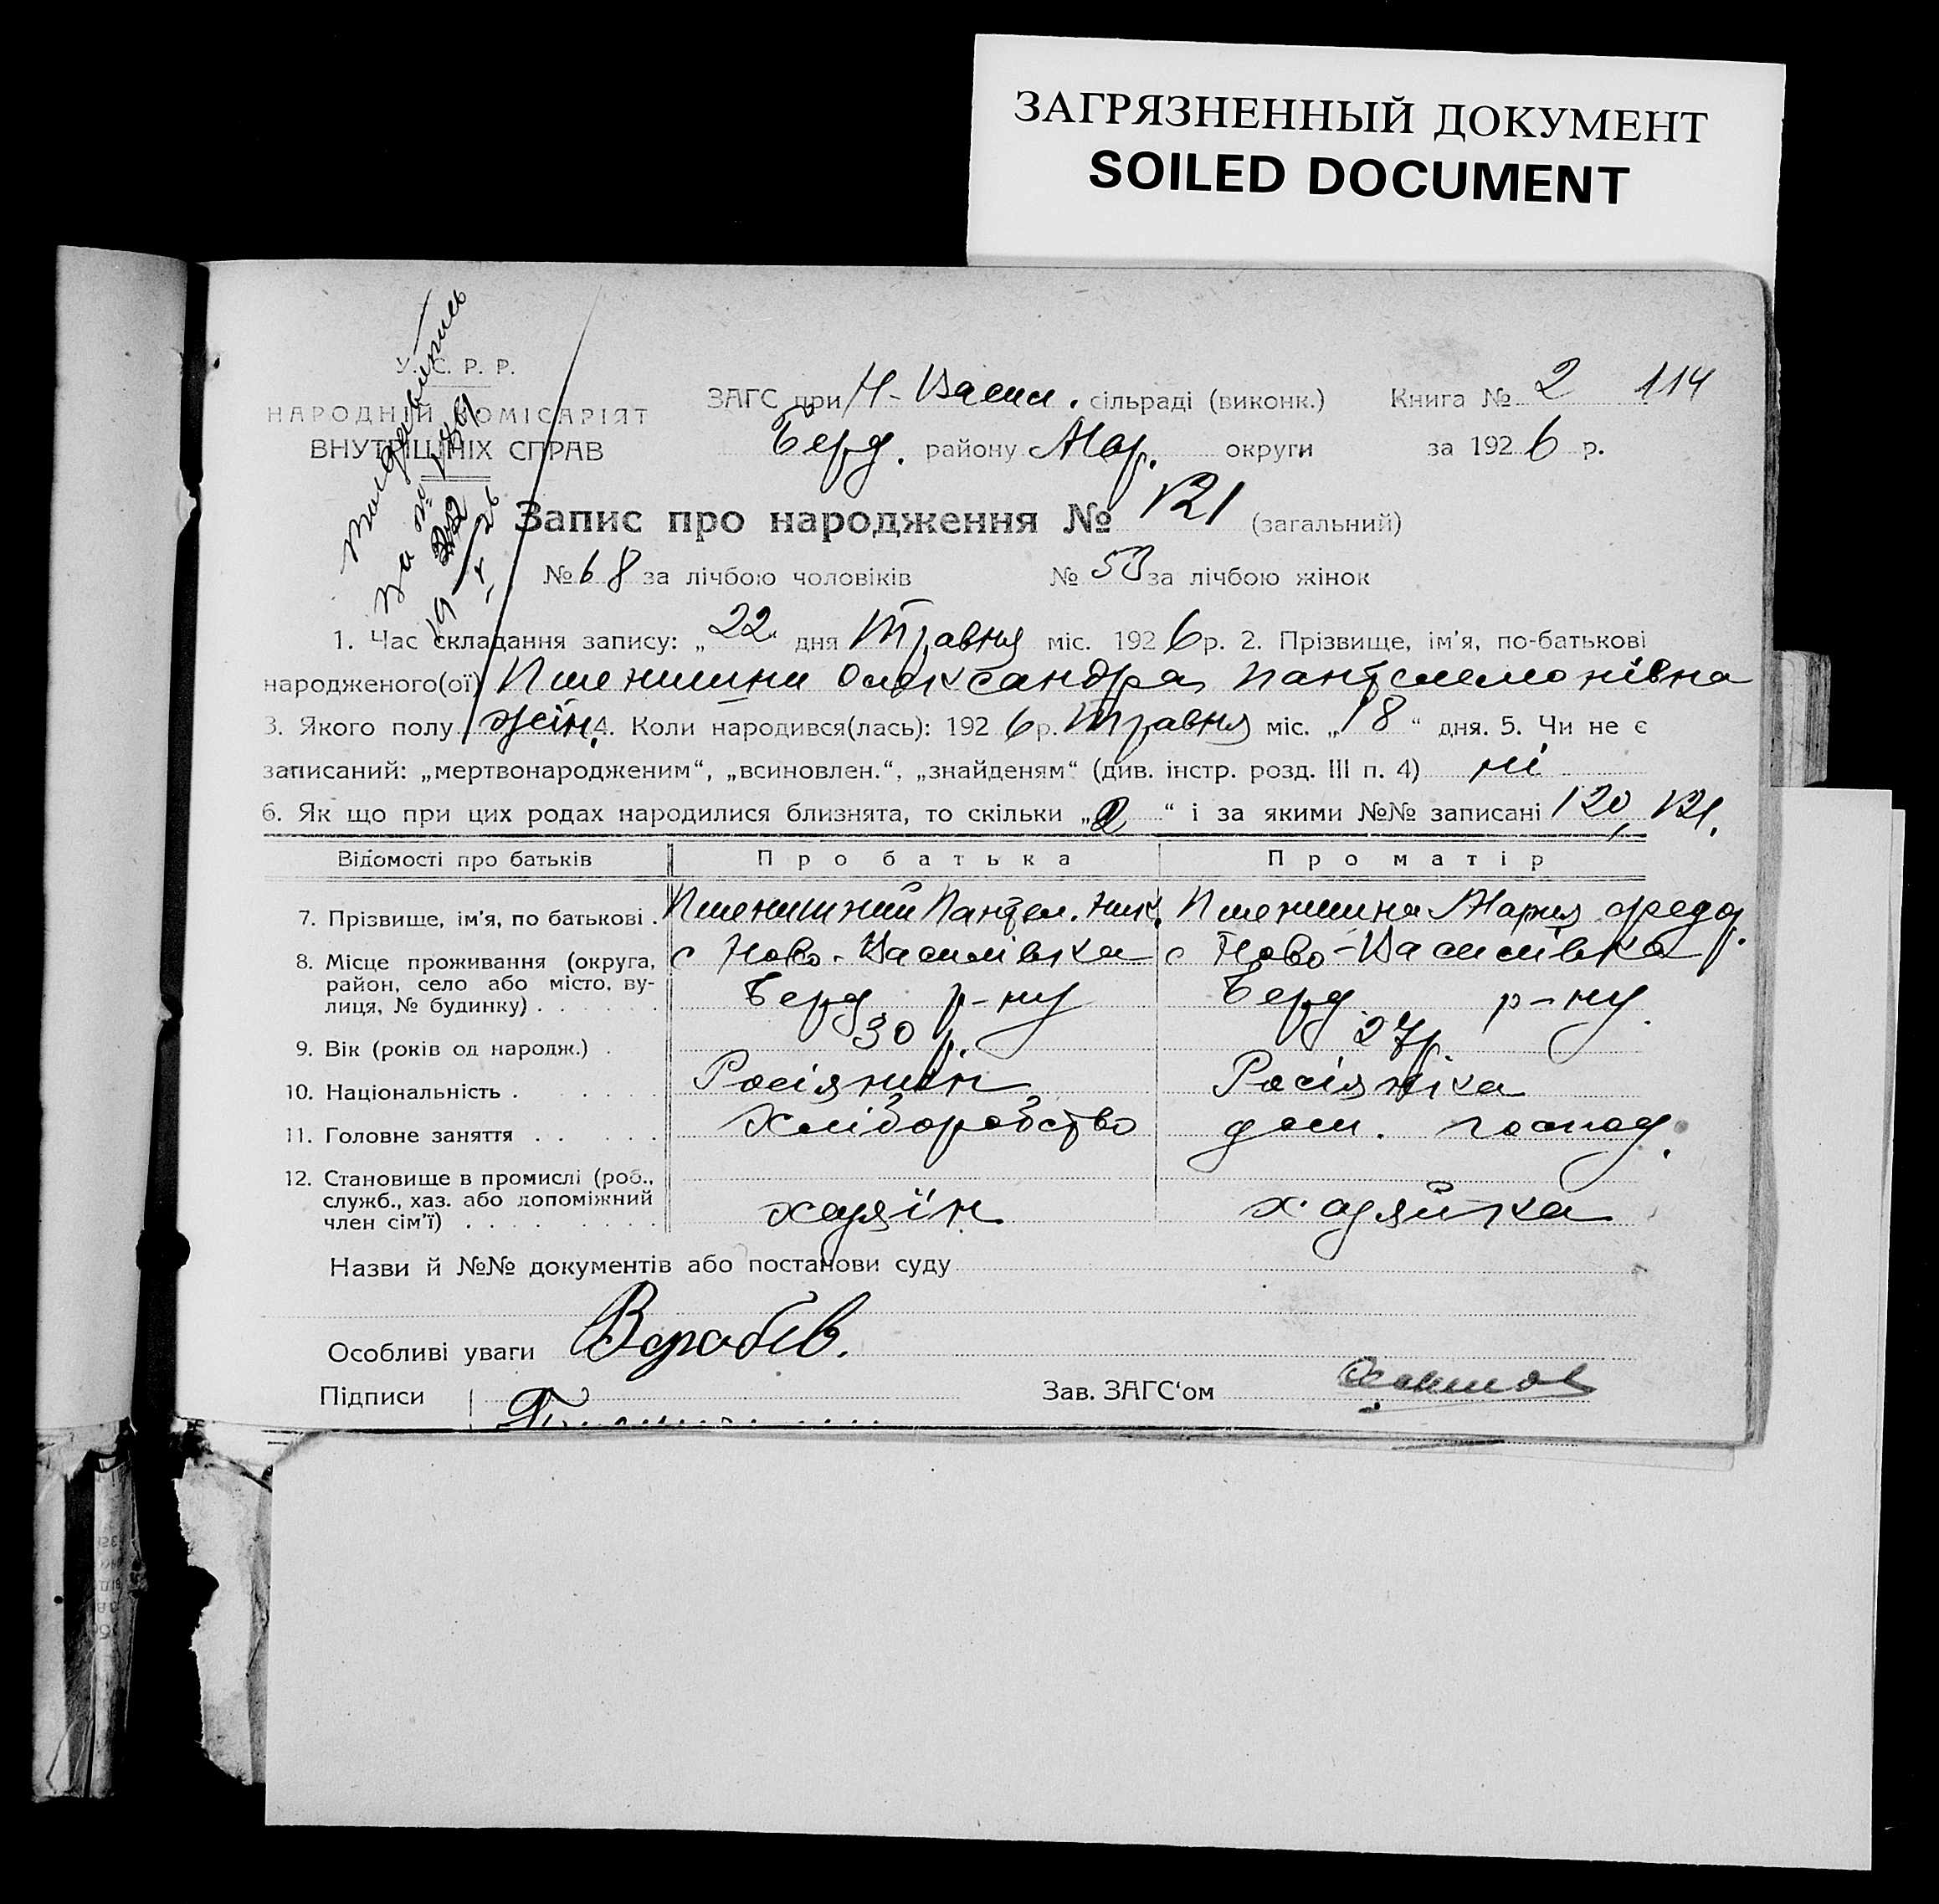 ЗАГРЯЗНЕННЫЙ ДОКУМЕНТ
SOILED DOCUMENT
У. С. Р. Р.
НАРОДНІЙ КОМІСАРІЯТ
ВНУТРІШНІХ СПРАВ
за № 1861
19
ЗАГС при Н-Васил. сільраді (виконк.) Книга № 2 114
Берд. району Мар. округи за 1926 р.
Запис про народження № 121 (загальний)
№ 68 за лічбою чоловіків № 53 за лічбою жінок
1. Час складання запису: „22 дня Травня міс. 1926 р. 2. Прізвище, ім'я, по-батькові
народженого(ої) Олександра Пантелемонівна
3. Якого полу жін. 4. Коли народився(лась): 1926 р. Травня міс. „18“ дня. 5. Чи не є
записаний: „мертвонародженим“, „всиновлен.“, „знайденям“ (див. інстр. розд. III п. 4) ні
6. Як що при цих родах народилися близнята, то скільки „2“ і за якими №№ записані 120, 121.
Відомості про батьків Про батька Про матір
7. Прізвище, ім'я, по батькові . Пшенишний Пантел. Ник. Пшенишна Мария Федор.
8. Місце проживання (округа, с Ново-Василівка с Ново-Василівка
район, село або місто, ву-
лиця, № будинку) . . . . . . Берд р-ну Берд р-ну.
9. Вік (років од народж.) . 30 р. 27 р.
10. Національність . . . . . . Росіянин Росіянка
11. Головне заняття . . . . . Хліборобство дом. господ.
12. Становище в промислі (роб.,
служб., хаз. або допоміжний
член сім'ї) . . . . . . . хазяїн хазяйка
Назви й №№ документів або постанови суду
Особливі уваги
Підписи Зав. ЗАГС'ом